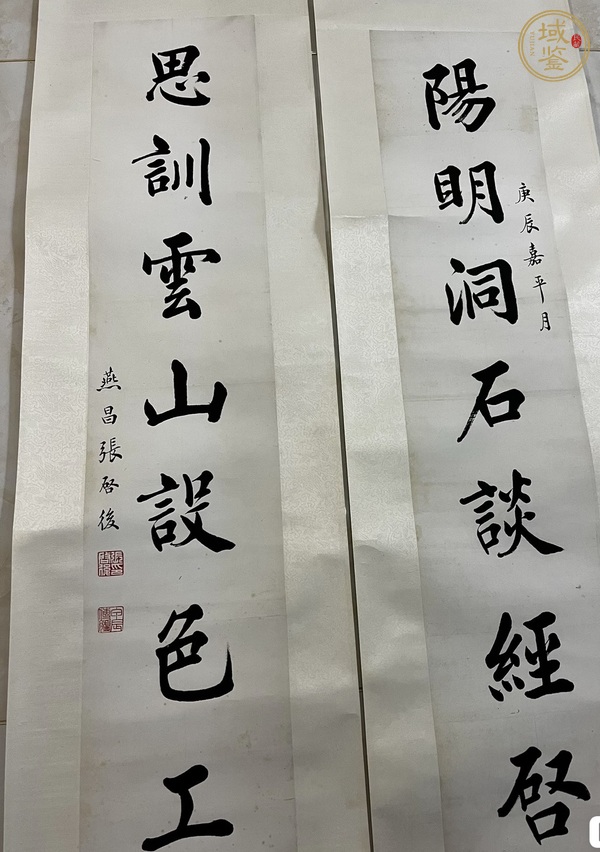 陽明洞石談經啓
庚辰嘉平月
思訓雲山設色工
燕昌張啓後
域鑒
YUJIAN